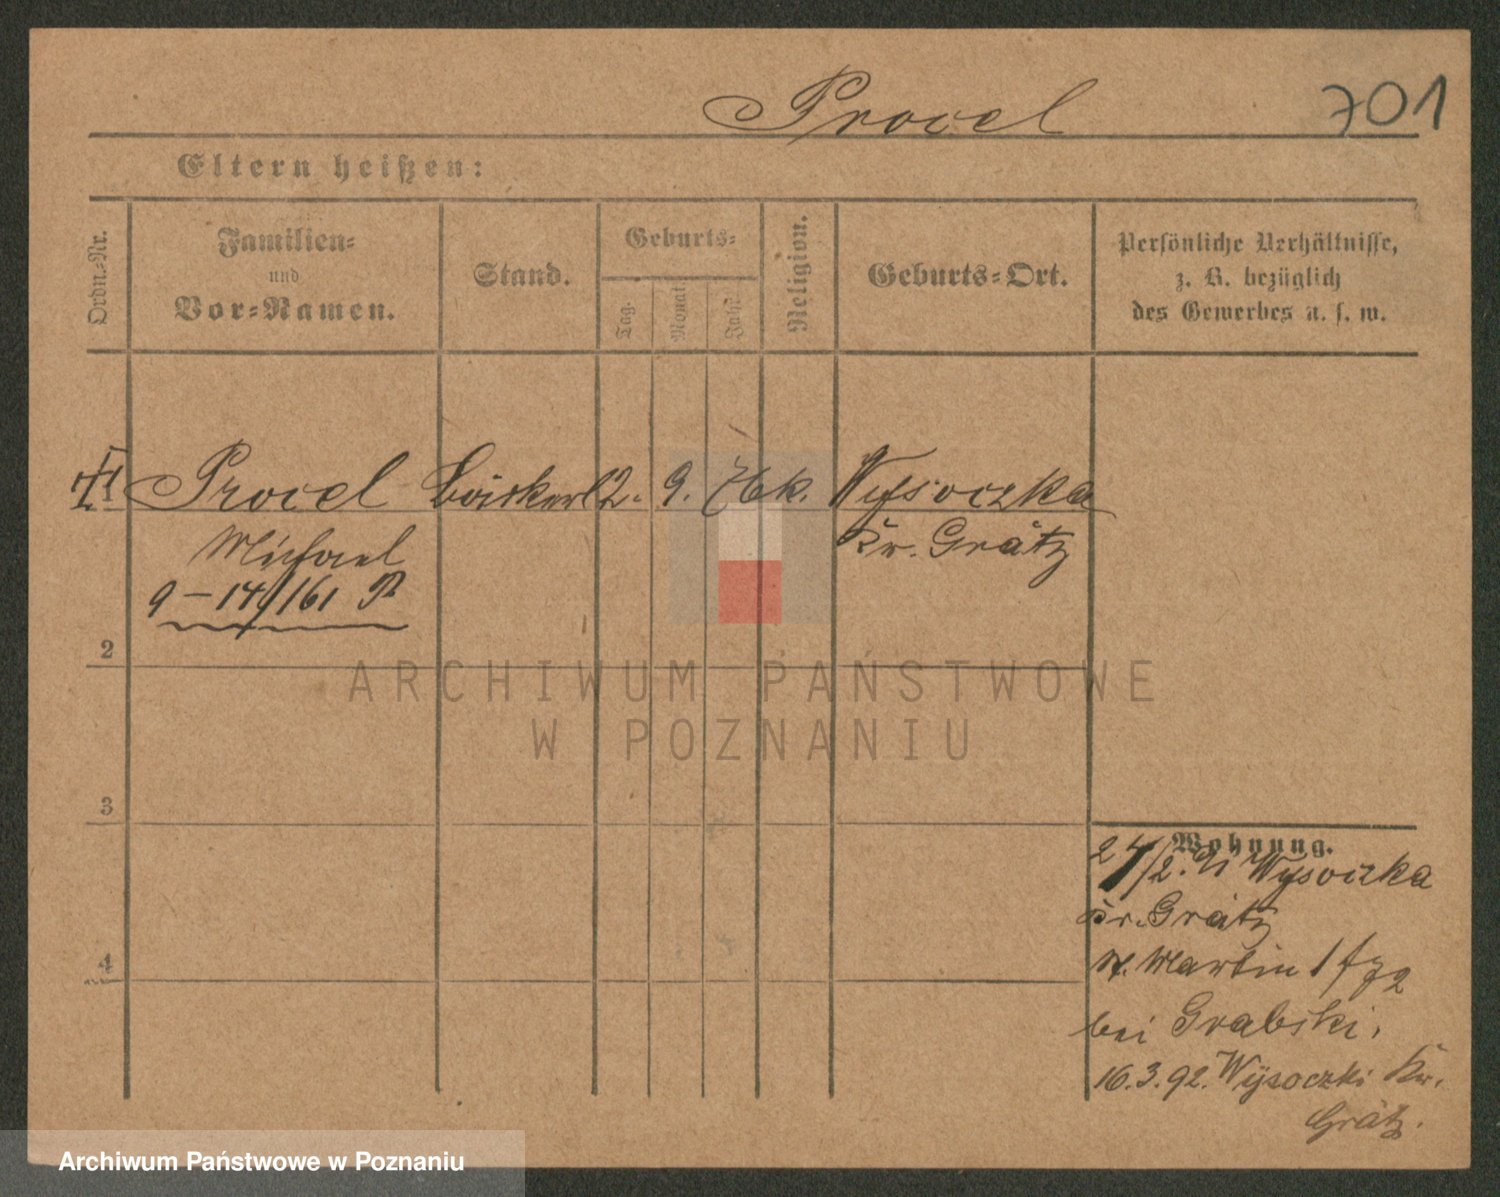 Procel 701
Eltern heißen:
Ordn.-Nr.
Familien-
und
Vor-Namen.
Stand.
Geburts-
Tag.
Monat.
Jahr.
Religion.
Geburts-Ort.
Persönliche Verhältnisse,
z. B. bezüglich
des Gewerbes u. s. w.
1 Procel Bäcker 12. 9. 76 k. Wysoczka
Michael Kr. Grätz
9-14/161 R
2
3
4
Wohnung.
Wysoczka
Kr. Grätz
St. Martin 1
bei Grabski.
16.3.92. Wysoczki Kr.
Grätz.
ARCHIWUM PAŃSTWOWE
W POZNANIU
Archiwum Państwowe w Poznaniu